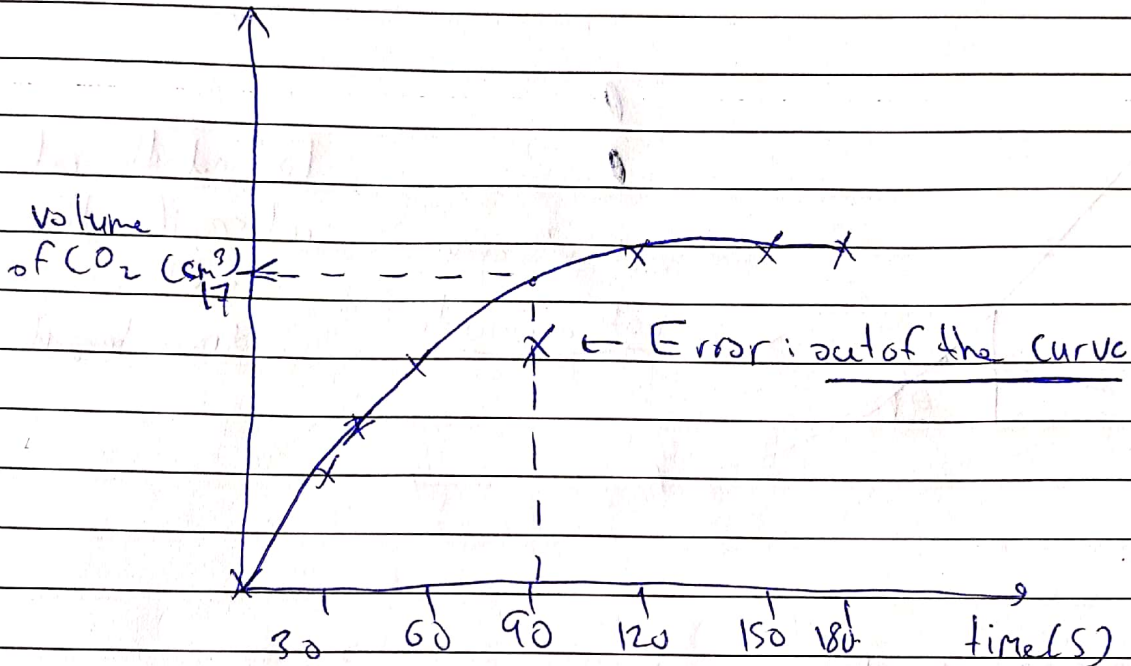 volume
of CO₂ (cm³)
17
← Error: out of the curve
30 60 90 120 150 180 time(s)